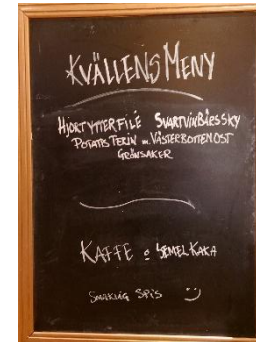 KVÄLLENS MENY
HJORTYTTERFILÉ SVARTVINBÄRSSKY
POTATIS TERIN m. VÄSTERBOTTENOST
GRÖNSAKER
KAFFE o SEMELKAKA
SMAKLIG SPIS :)